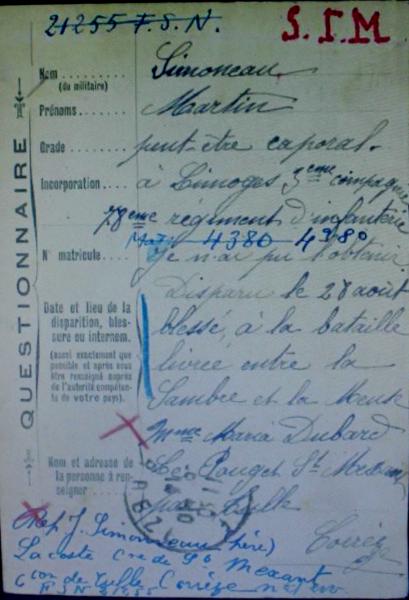 21255 F.S.N.
S.I.M
QUESTIONNAIRE
Nom ........ Simoneau
(du militaire)
Prénoms ........ Martin
Grade ........ peut être caporal.
Incorporation ........ à Limoges 3eme compagnie
78eme régiment d'infanterie
Mat. 4380 4380
N° matricule ........ Je n'ai pu l'obtenir
Date et lieu de la disparition, blessure ou internem.
(aussi exactement que possible et après vous être renseigné auprès de l'autorité compétente de votre pays).
Disparu le 28 août
blessé, à la bataille
livrée entre la
Sambre et la Meuse
Nom et adresse de la personne à renseigner ........
Mme Maria Dubard
Le Pouget St
par Tulle
Corrèze
Rep J. Simoneau (père)
Lacoste Cne de St Mexant
Con de Tulle Corrèze
F S N 21255